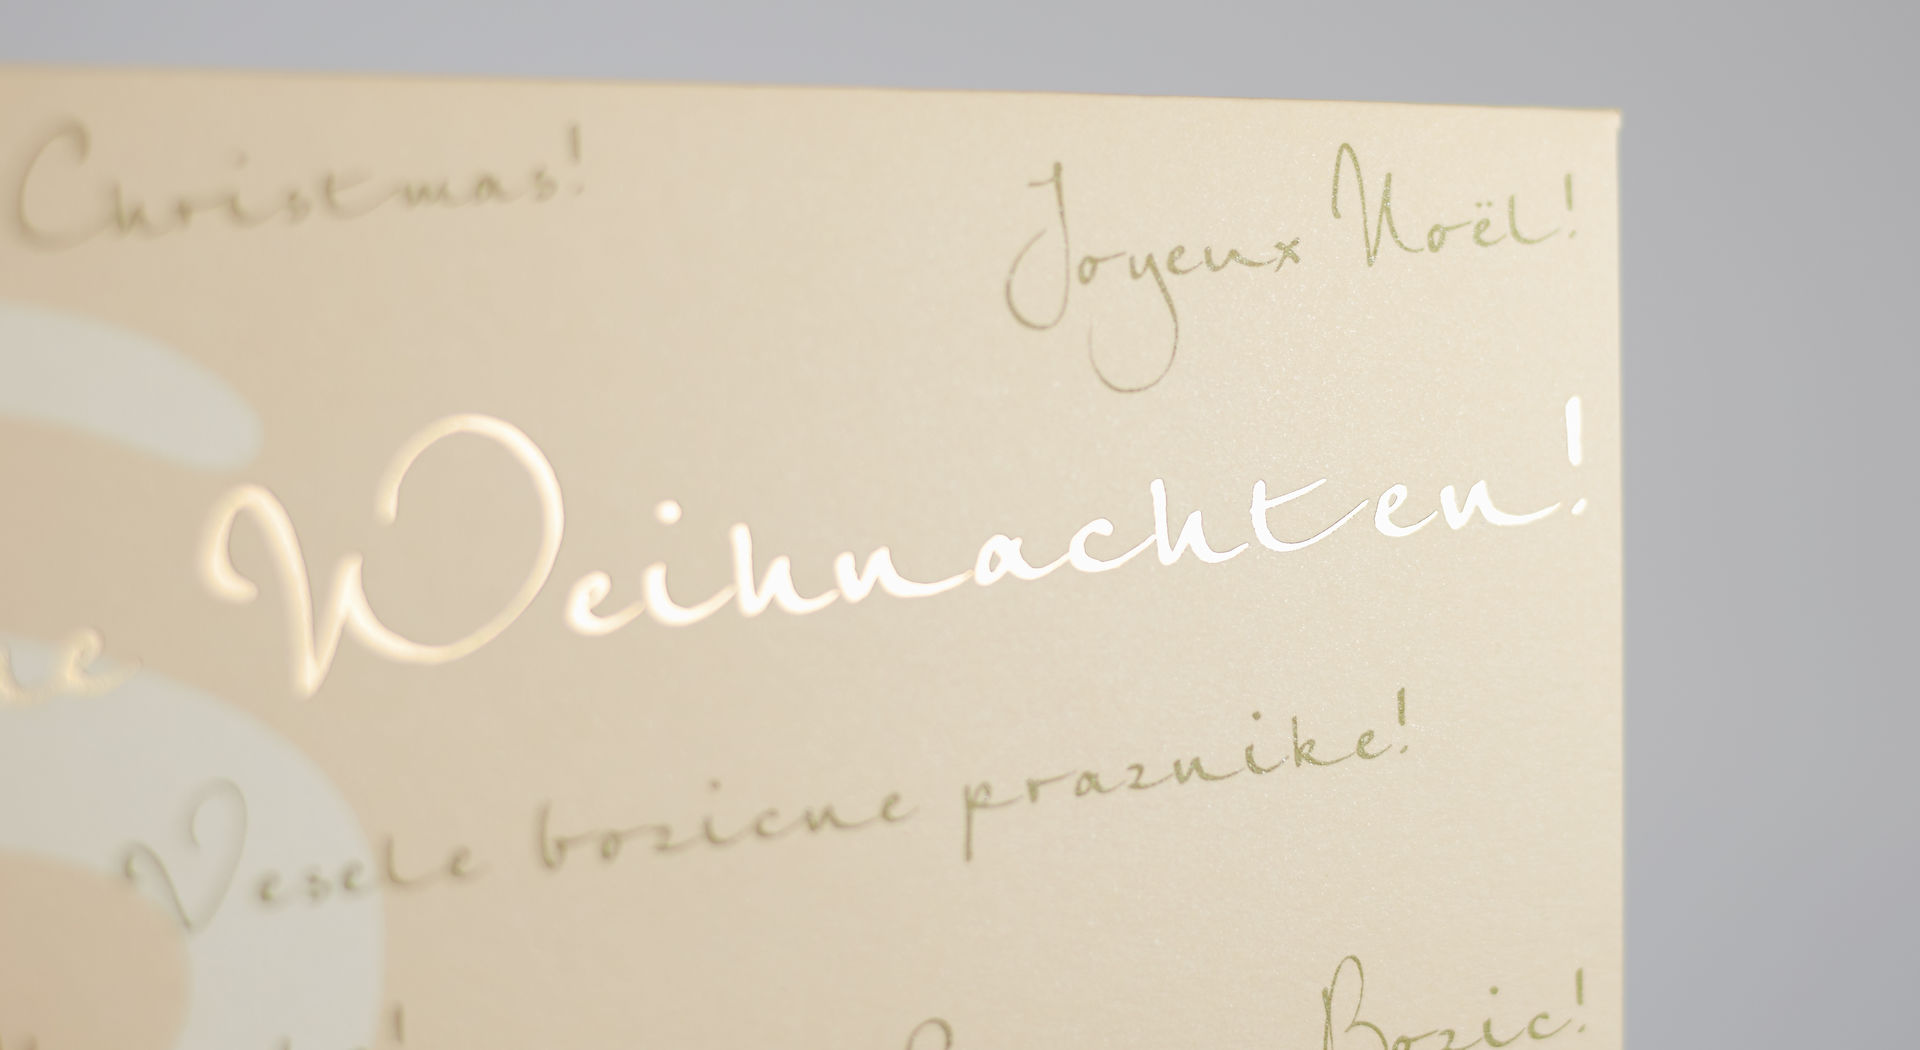 Christmas!
Joyeux Noël!
Weihnachten!
Vesele bozicne praznike!
Bozic!